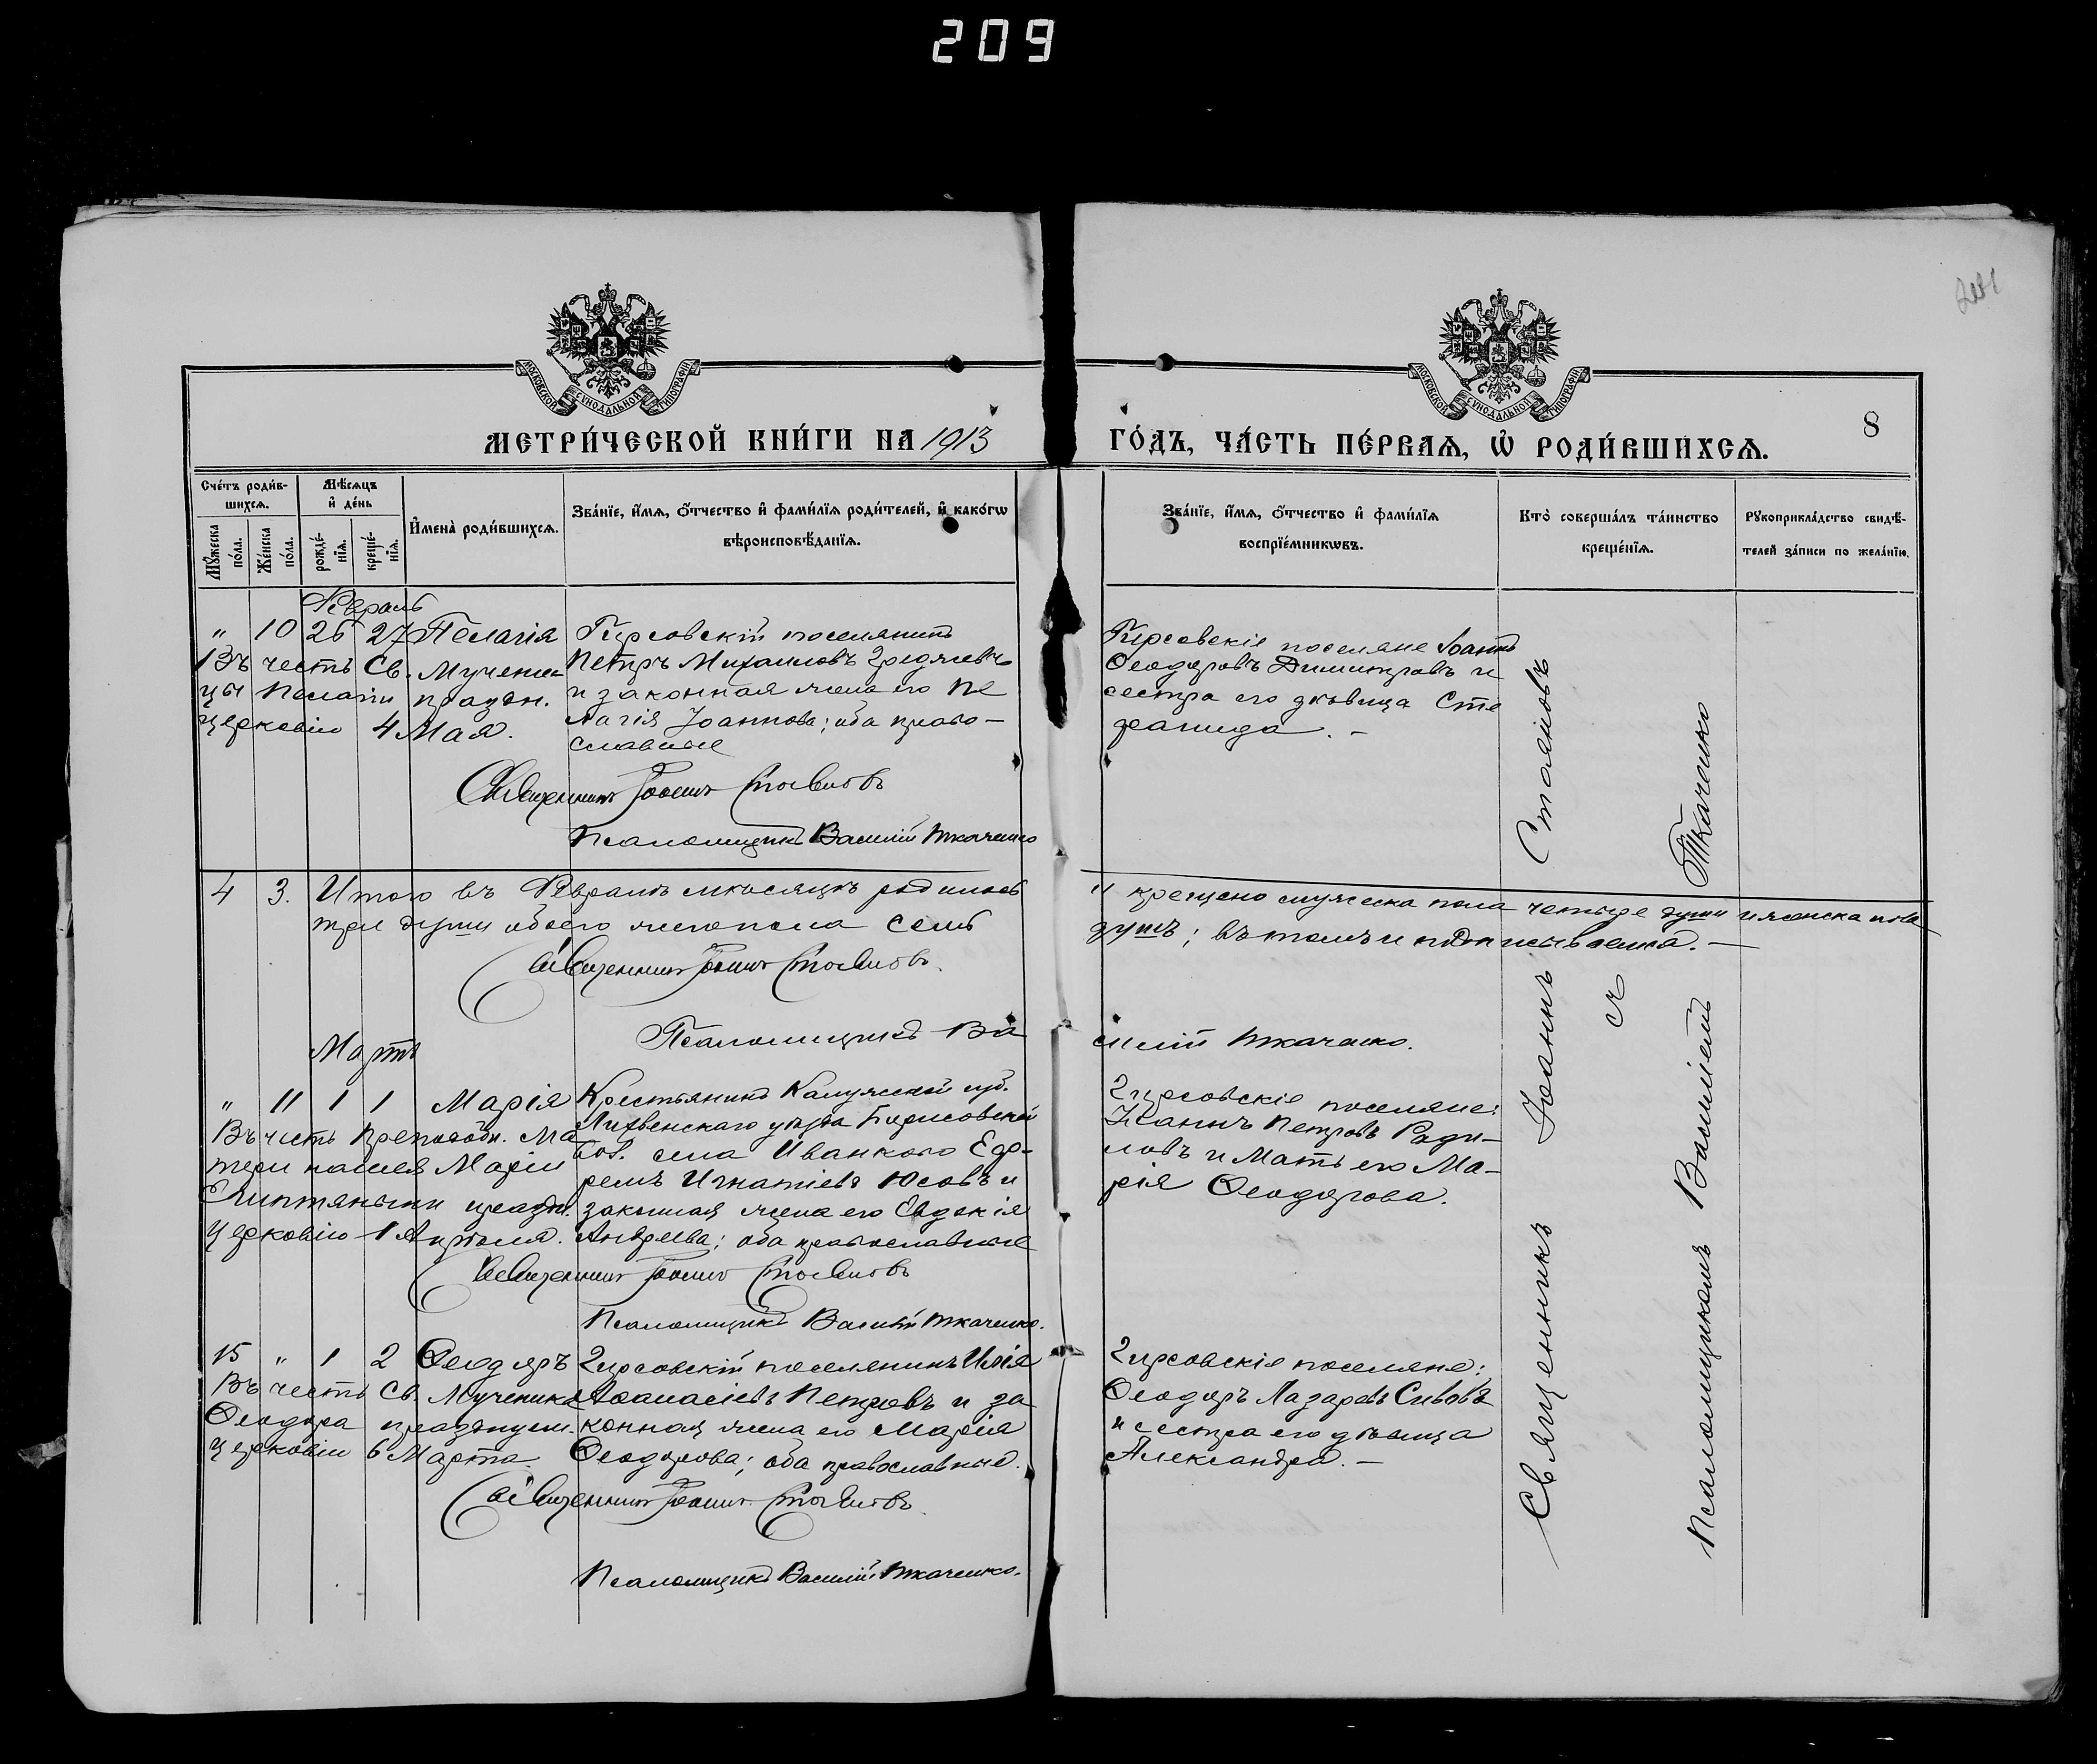 209
МОСКОВСКОЙ СѴНОДАЛЬНОЙ ТИПОГРАФІИ
МОСКОВСКОЙ СѴНОДАЛЬНОЙ ТИПОГРАФІИ
МЕТРИ́ЧЕСКОЙ КНИ́ГИ НА 1913
ГО́ДЪ, ЧА́СТЬ ПЕ́РВАѦ, Ѡ҆ РОДИ́ВШИХСѦ.
8
Сче́тъ роди́в-
шихсѧ.
Мѣ́сѧцъ
и҆ де́нь
Мꙋ́жеска
по́ла.
Же́нска
по́ла.
рожде́-
нїѧ.
креще́-
нїѧ.
И҆мена̀ роди́вшихсѧ.
Зва́нїе, и҆́мѧ, ѻ҆́тчество и҆ фами́лїѧ роди́телей, и҆ како́гѡ
вѣроисповѣ́данїѧ.
Зва́нїе, и҆́мѧ, ѻ҆́тчество и҆ фами́лїѧ
воспрїе́мникѡвъ.
Кто̀ соверша́лъ та́инство
креще́нїѧ.
Рꙋкоприкла́дство свидѣ́-
телей за́писи по жела́нїю.
Февраль
" 10 26 27 Пелагія
Въ честь Св. Мучени-
цы Пелагіи праздн.
церковію 4 Мая.
Гирсовскій поселянинъ
Петръ Михаиловъ
и законная жена его Пе
лагія Іоаннова; оба право-
славные
Священникъ Іоаннъ Стояновъ
Псаломщикъ Василій Ткаченко
Гирсовскіе поселяне Іоаннъ
Ѳеодоровъ Димитровъ и
сестра его дѣвица Сте
фанида. -
4 3. Итого въ Февралѣ мѣсяцѣ родилось
три души обоего же пола семь
Священникъ Іоаннъ Стояновъ.
Псаломщикъ Ва
и крещено мужеска пола четыре души и женска пола
душъ; въ томъ и подписываемся. -
силій Ткаченко.
Мартъ
" 11 1 1 Марія
Въ честь Преподобн. Ма
тери нашея Маріи
Египтяныни праздн.
церковію 1 Апрѣля.
Крестьянинъ Калужской губ.
Лихвенскаго уѣзда Борисовской
вол. села Иванкого Еф-
ремъ Игнатіевъ Юсовъ и
законная жена его Евдокія
Андреева; оба православные
Священникъ Іоаннъ Стояновъ
Псаломщикъ Василій Ткаченко.
Гирсовскіе поселяне:
Іоаннъ Петровъ Ради-
ловъ и Мать его Ма-
рія Ѳеодорова.
15 " 1 2 Ѳеодоръ
Въ честь Св. Мученика
Ѳеодора празднуем.
церковію 6 Марта
Гирсовскій поселянинъ Илія
Аѳанасіевъ Петровъ и за
конная жена его Марія
Ѳеодорова; оба православные.
Священникъ Іоаннъ Стояновъ
Псаломщикъ Василій Ткаченко.
Гирсовскіе поселяне:
Ѳеодоръ Лазаревъ Сивовъ
и сестра его дѣвица
Александра. -
Священникъ Іоаннъ Стояновъ
съ
Псаломщикомъ Василіемъ Ткаченко